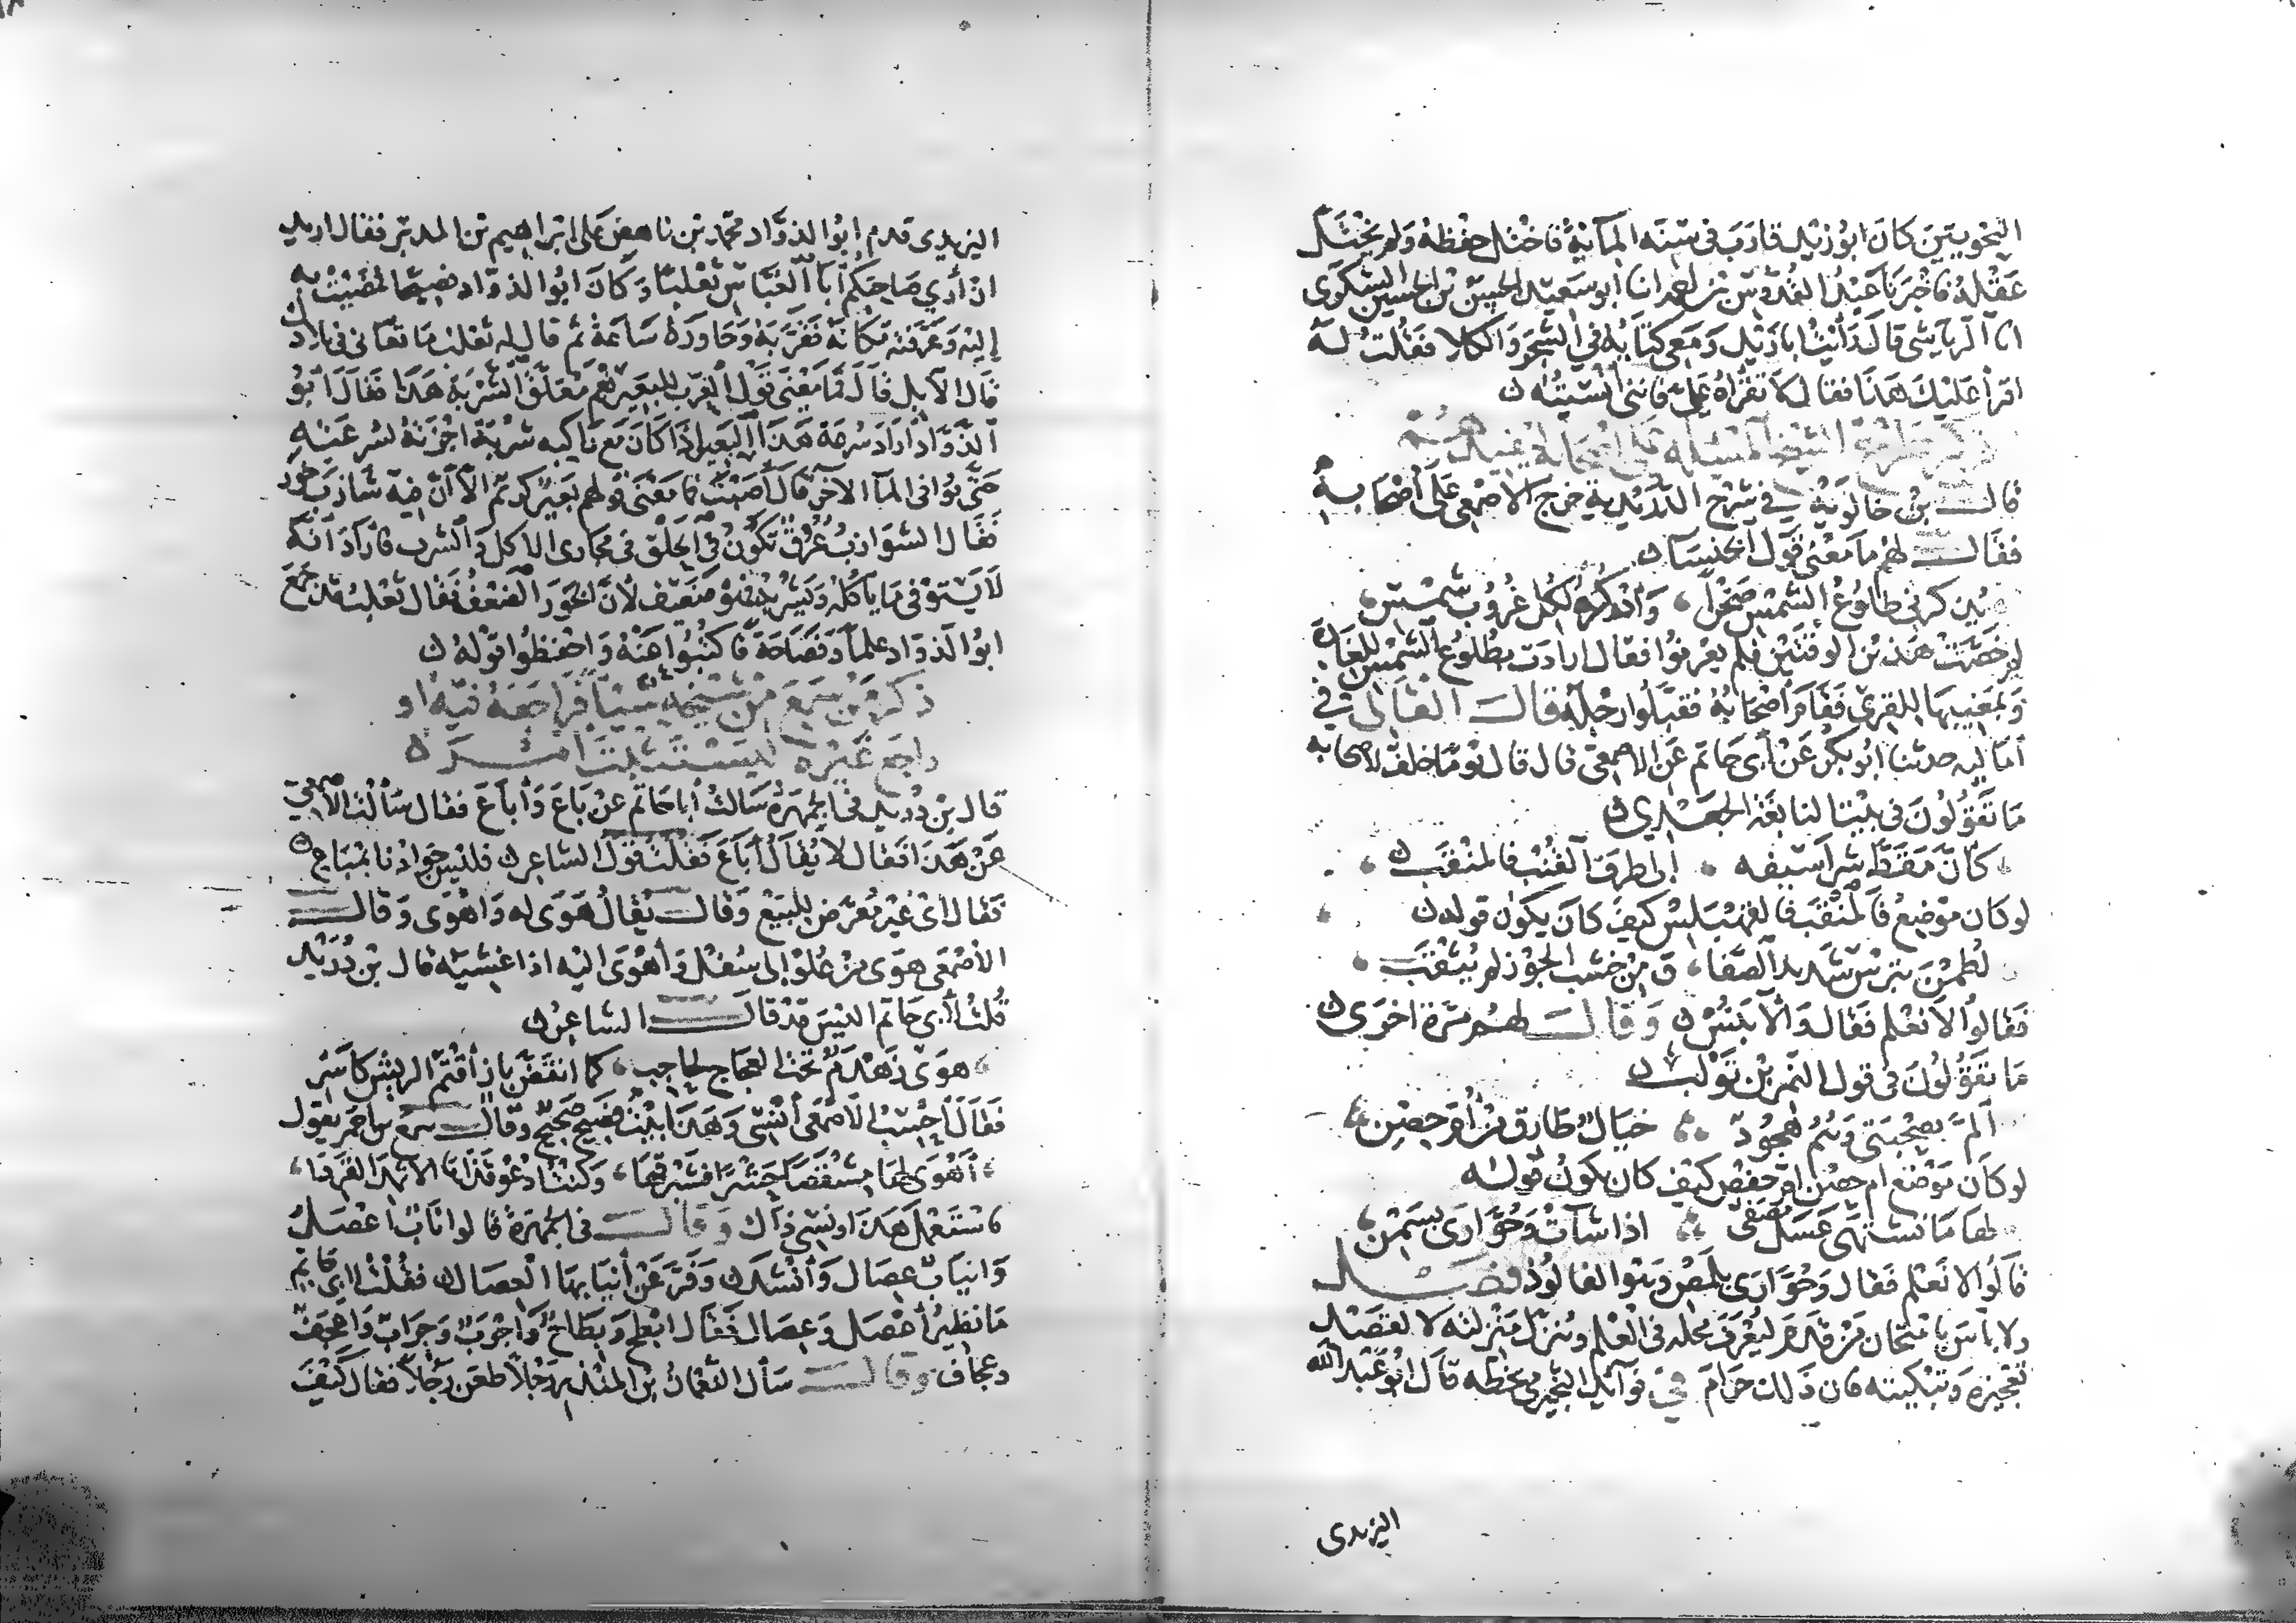 النحويين كان ابو زيد قارب في سنه المائة فاختل حفظه ولم يختل
عقله فاخبرنا عبد القدوس بن احمد انا ابو سعيد الحسن بن الحسين السكري
انا الرياشي قال رأيت ابا زيد ومعي كتابه في الشجر والكلا فقلت له
اقرأ عليك هذا فقال لا تقرأه علي فانني أنسيته
ذكر طرح الشيخ المسئلة على اصحابه ليفيدهم
قال بن خالويه في شرح الدريدية خرج الاصمعي على أصحابه
فقال لهم ما معنى قول الخنساء
يذكرني طلوع الشمس صخرا وأذكره لكل غروب شمس
لم خصت هذين الوقتين فلم يعرفوا فقال ارادت بطلوع الشمس للغارة
وبمغيبها للقرى فقام أصحابه فقبلوا رجله قال القالي في
أماليه حدثنا ابو بكر عن أبي حاتم عن الاصمعي قال قال يوما خلف لاصحابه
ما تقولون في بيت النابغة الجعدي
كأن مقط شراسيفه الى طرف القنب فالمنقب
لو كان موضع فالمنقب فالقهبلس كيف كان يكون قوله
لطمن بترس شديد الصفا ق من خشب الجوز لم يثقب
فقالوا لا نعلم فقال والابنس وقال لهم مرة اخرى
ما تقولون في قول النمر بن تولب
ألم بصحبتي وهم هجود خيال طارق من أم حصن
لو كان موضع ام حصن ام حفص كيف كان يكون قوله
لها ما تشتهي عسل مصفى اذا شاءت وحوارى بسمن
قالوا لا نعلم فقال وحوارى بلمص وهو الفالوذ فصل
ولا بأس بامتحان من قدم ليعرف محله في العلم وينزل منزلته لا لقصد
تعجيزه وتبكيته فان ذلك حرام في فوائد النجيرمي بخطه قال ابو عبد الله
اليزيدى
اليزيدى قدم ابو الذواد محمد بن ناهض على ابراهيم بن المدبر فقال اريد
ان أرى صاحبكم أبا العباس ثعلبا وكان ابو الذواد فصيحا فمضيت به
إليه وعرفته مكانه فقربه وحاوره ساعة ثم قال له ثعلب ما تعاني في بلادك
قال الابل قال فما معنى قول العرب للبعير نعم معلق الشربة هذا فقال ابو
الذواد أراد سرعة هذا البعير اذا كان مع راكبه شربة اجزته لسرعته
حتى يوافي الماء الآخر قال أصبت فما معنى قولهم بعير كريم الا أن فيه شارب خور
فقال الشوارب عروق تكون في الحلق في مجارى الاكل والشرب فأراد أنه
لا يستوفي ما يأكله ويشربه فهو ضعيف لأن الخور الضعف فقال ثعلب قد جمع
ابو الذواد علما وفصاحة فاكتبوا عنه واحفظوا قوله
ذكر من سمع من شيخه شيئا فراجعه فيه او
راجع غيره ليستثبت امره
قال بن دريد في الجمهرة سألت أبا حاتم عن باع وأباع فقال سألت الاصمعي
عن هذا فقال لا يقال أباع فقلت قول الشاعر فليس جوادنا بمباع
فقال أي غير معرض للبيع وقال يقال هوى له واهوى وقال
الأصمعي هوى من علو إلى سفل وأهوى اليه اذا غشيه قال بن دريد
قلت لأبي حاتم اليس قد قال الشاعر
هوى زهدم تحت العجاج لحاجب كما انقض باز أقتم الريش كاسر
فقال أحسب الاصمعي أنسي وهذا بيت فصيح صحيح وقال سمع بن احمر يقول
أهوى لها مشقصا حشرا فشبرقها وكنت أدعو قذاها الاثمد القردا
فاستعمل هذا ونسي ذاك وقال في الجمهرة قالوا ناب أعصل
وانياب عصال وأنشد وفر عن أنيابها العصال فقلت لابي حاتم
ما نظير أعصل وعصال فقال ابطح وبطاح وأجرب وجراب وأعجف
وعجاف وقال سأل النعمان بن المنذر رجلا طعن رجلا فقال كيف